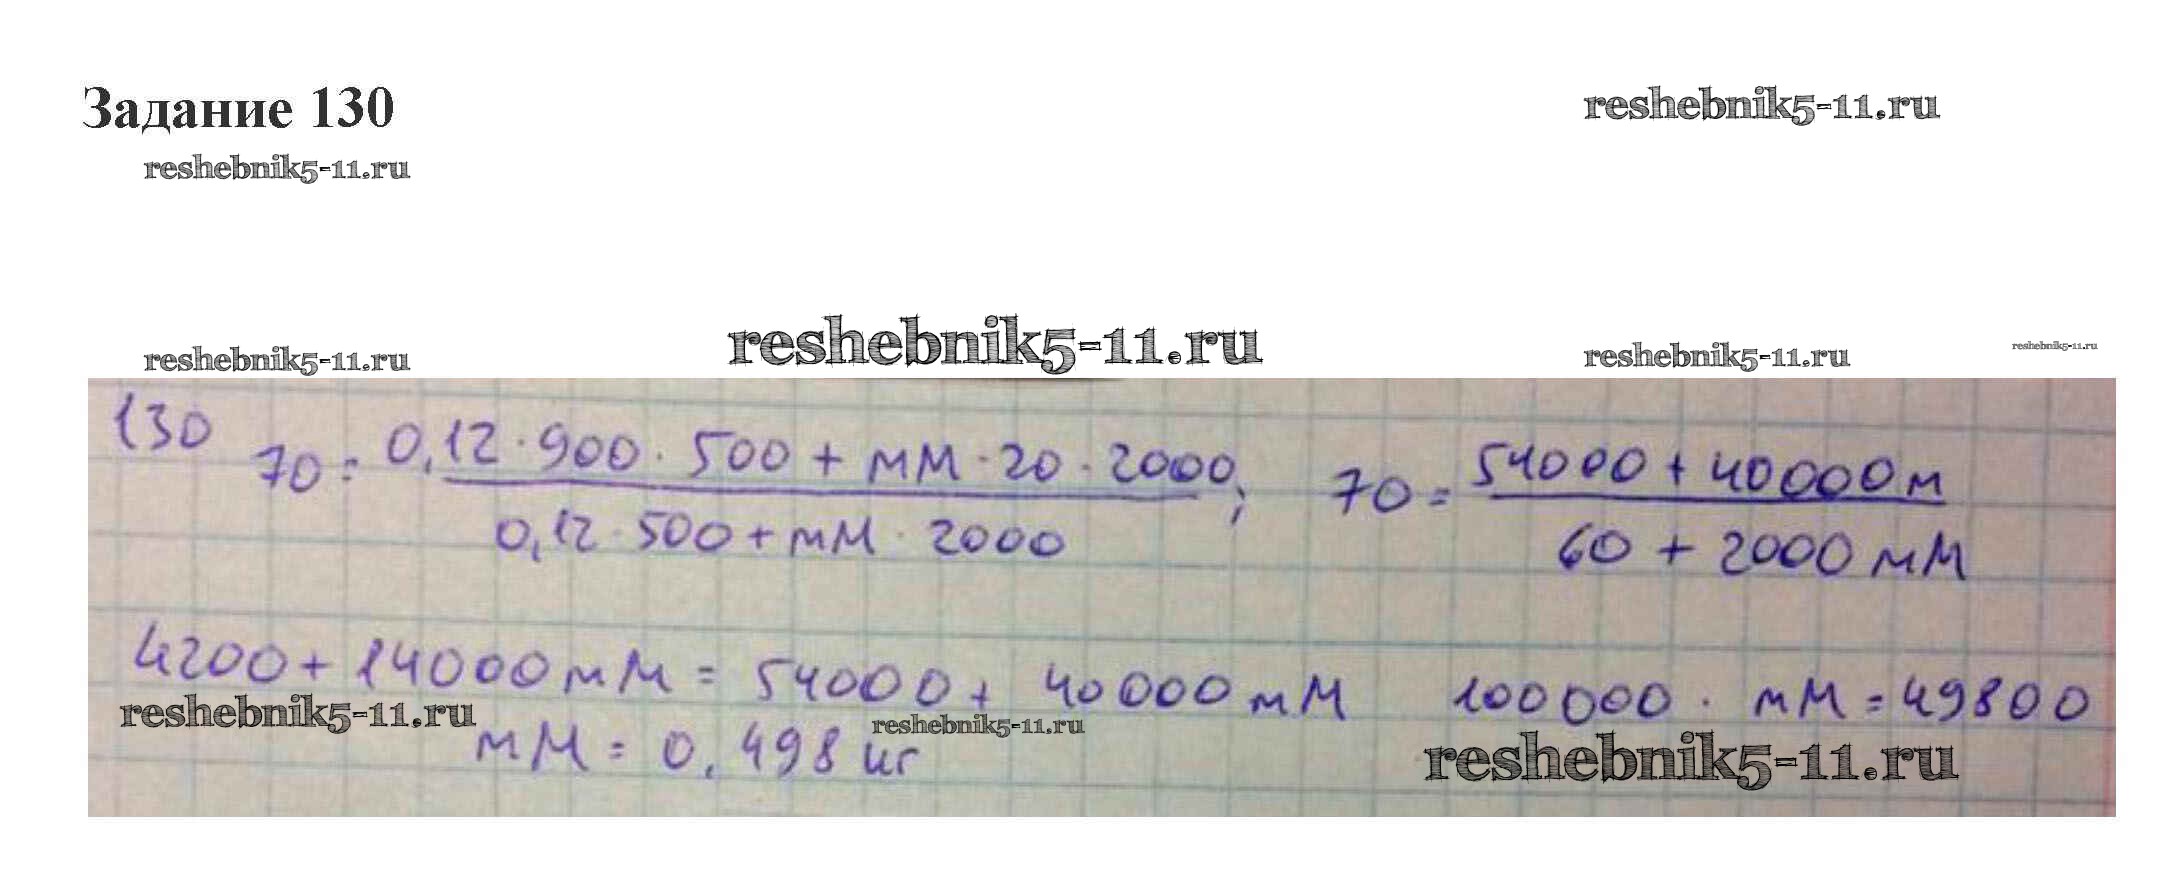 Задание 130
reshebnik5-11.ru
reshebnik5-11.ru
reshebnik5-11.ru
reshebnik5-11.ru
reshebnik5-11.ru
reshebnik5-11.ru
130
70 = 0,12·900·500 + мМ·20·2000 / 0,12·500 + мМ·2000 ; 70 = 54000 + 40000м / 60 + 2000мМ
4200 + 14000мМ = 54000 + 40000мМ 100000 · мМ = 49800
reshebnik5-11.ru
reshebnik5-11.ru
мМ = 0,498 кг
reshebnik5-11.ru